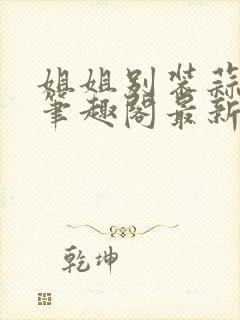 姐姐别装蒜
笔趣阁最新
乾坤